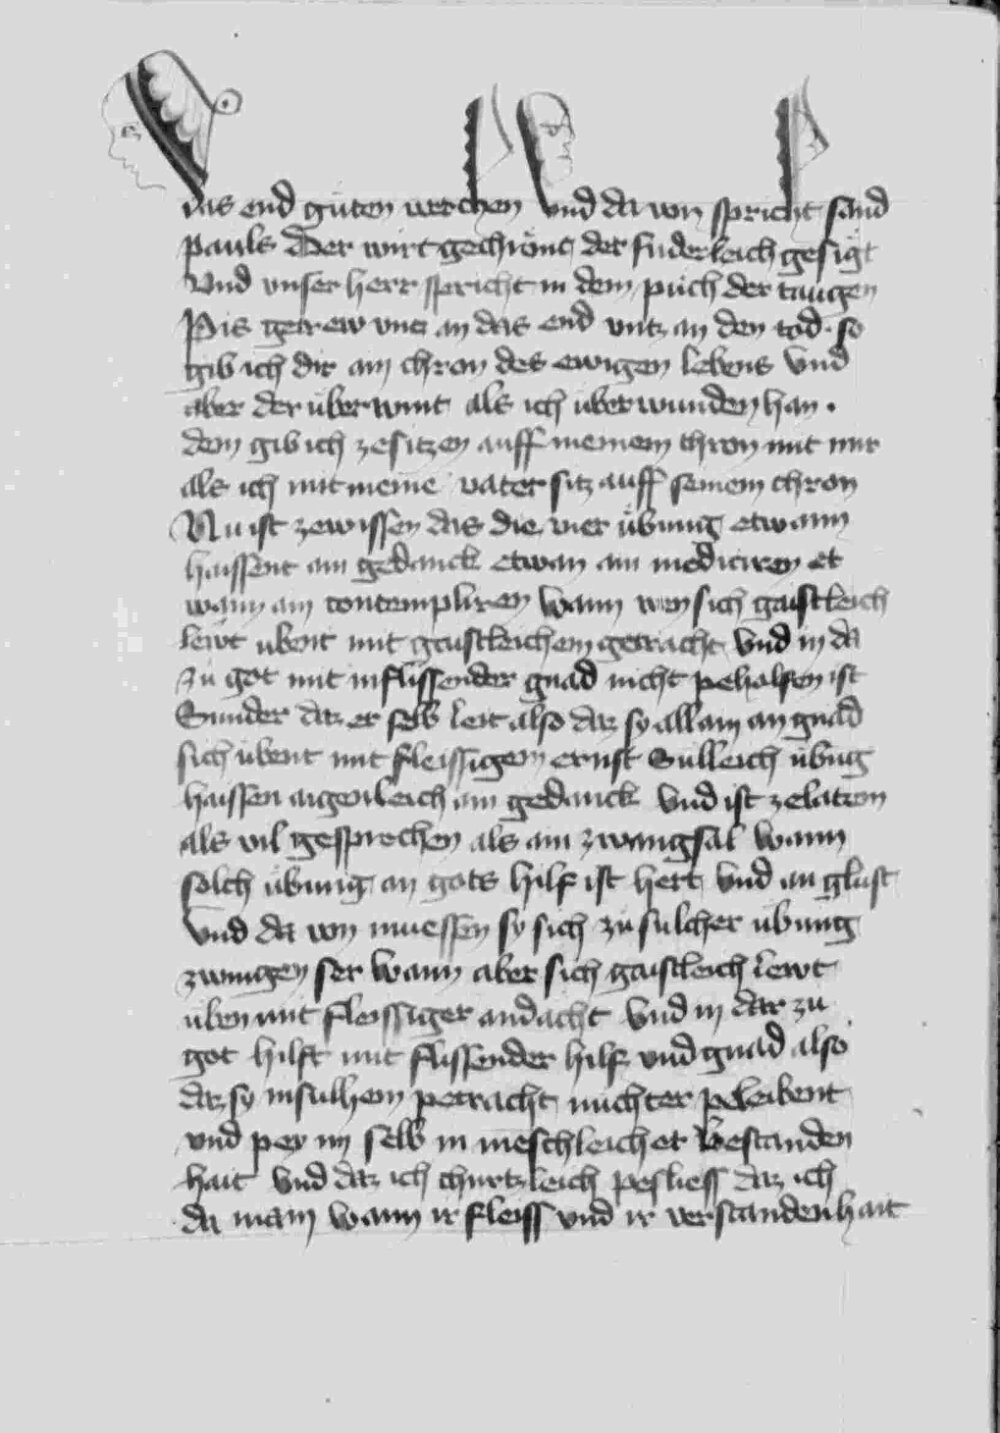 das end güten werchen und da von spricht sand
pauls Der wirt gechrönt der fuderleich gesigt
Und unser herr spricht in dem püch der taugen
Pis getrew untz an das end untz an den tod · so
gib ich dir ain chron des ewigen lebens Und
aber der überwint als ich überwunden han ·
dem gib ich zesitzen auff meinem thron mit mir
als ich mit meine vater sitz auff seinem chron
Nu ist zewissen das die vier übung etwann
haissent ain gedanck etwan ain meditiren et
wann ain contempliren Wann wen sich gaistleich
lewt übent mit gaistleichem getracht Und in da
zü got mit inflissender gnad nicht peholfen ist
Sunder daz er selb leit also daz sy allain an gnad
sich übent mit fleissigem ernst Sülleich übüg
haissen aigenleich ain gedanck Und ist zelatein
als vil gesprochen als ain zwangsal Wann
solch übung an gots hilf ist hert Und an glust
Und da von muessen sy sich zü sulcher übung
zwingen ser Wann aber sich gaistleich lewt
üben mit fleissiger andacht Und in dar zu
got hilft mit flissender hilf und gnad also
daz sy in sulhem petracht nüchter peleibent
und pey in selb in meschleicher Bestanden
hait Und daz ich churtzleich pesliess daz ich
da main Wann ir fleiss und ir verstandenhait